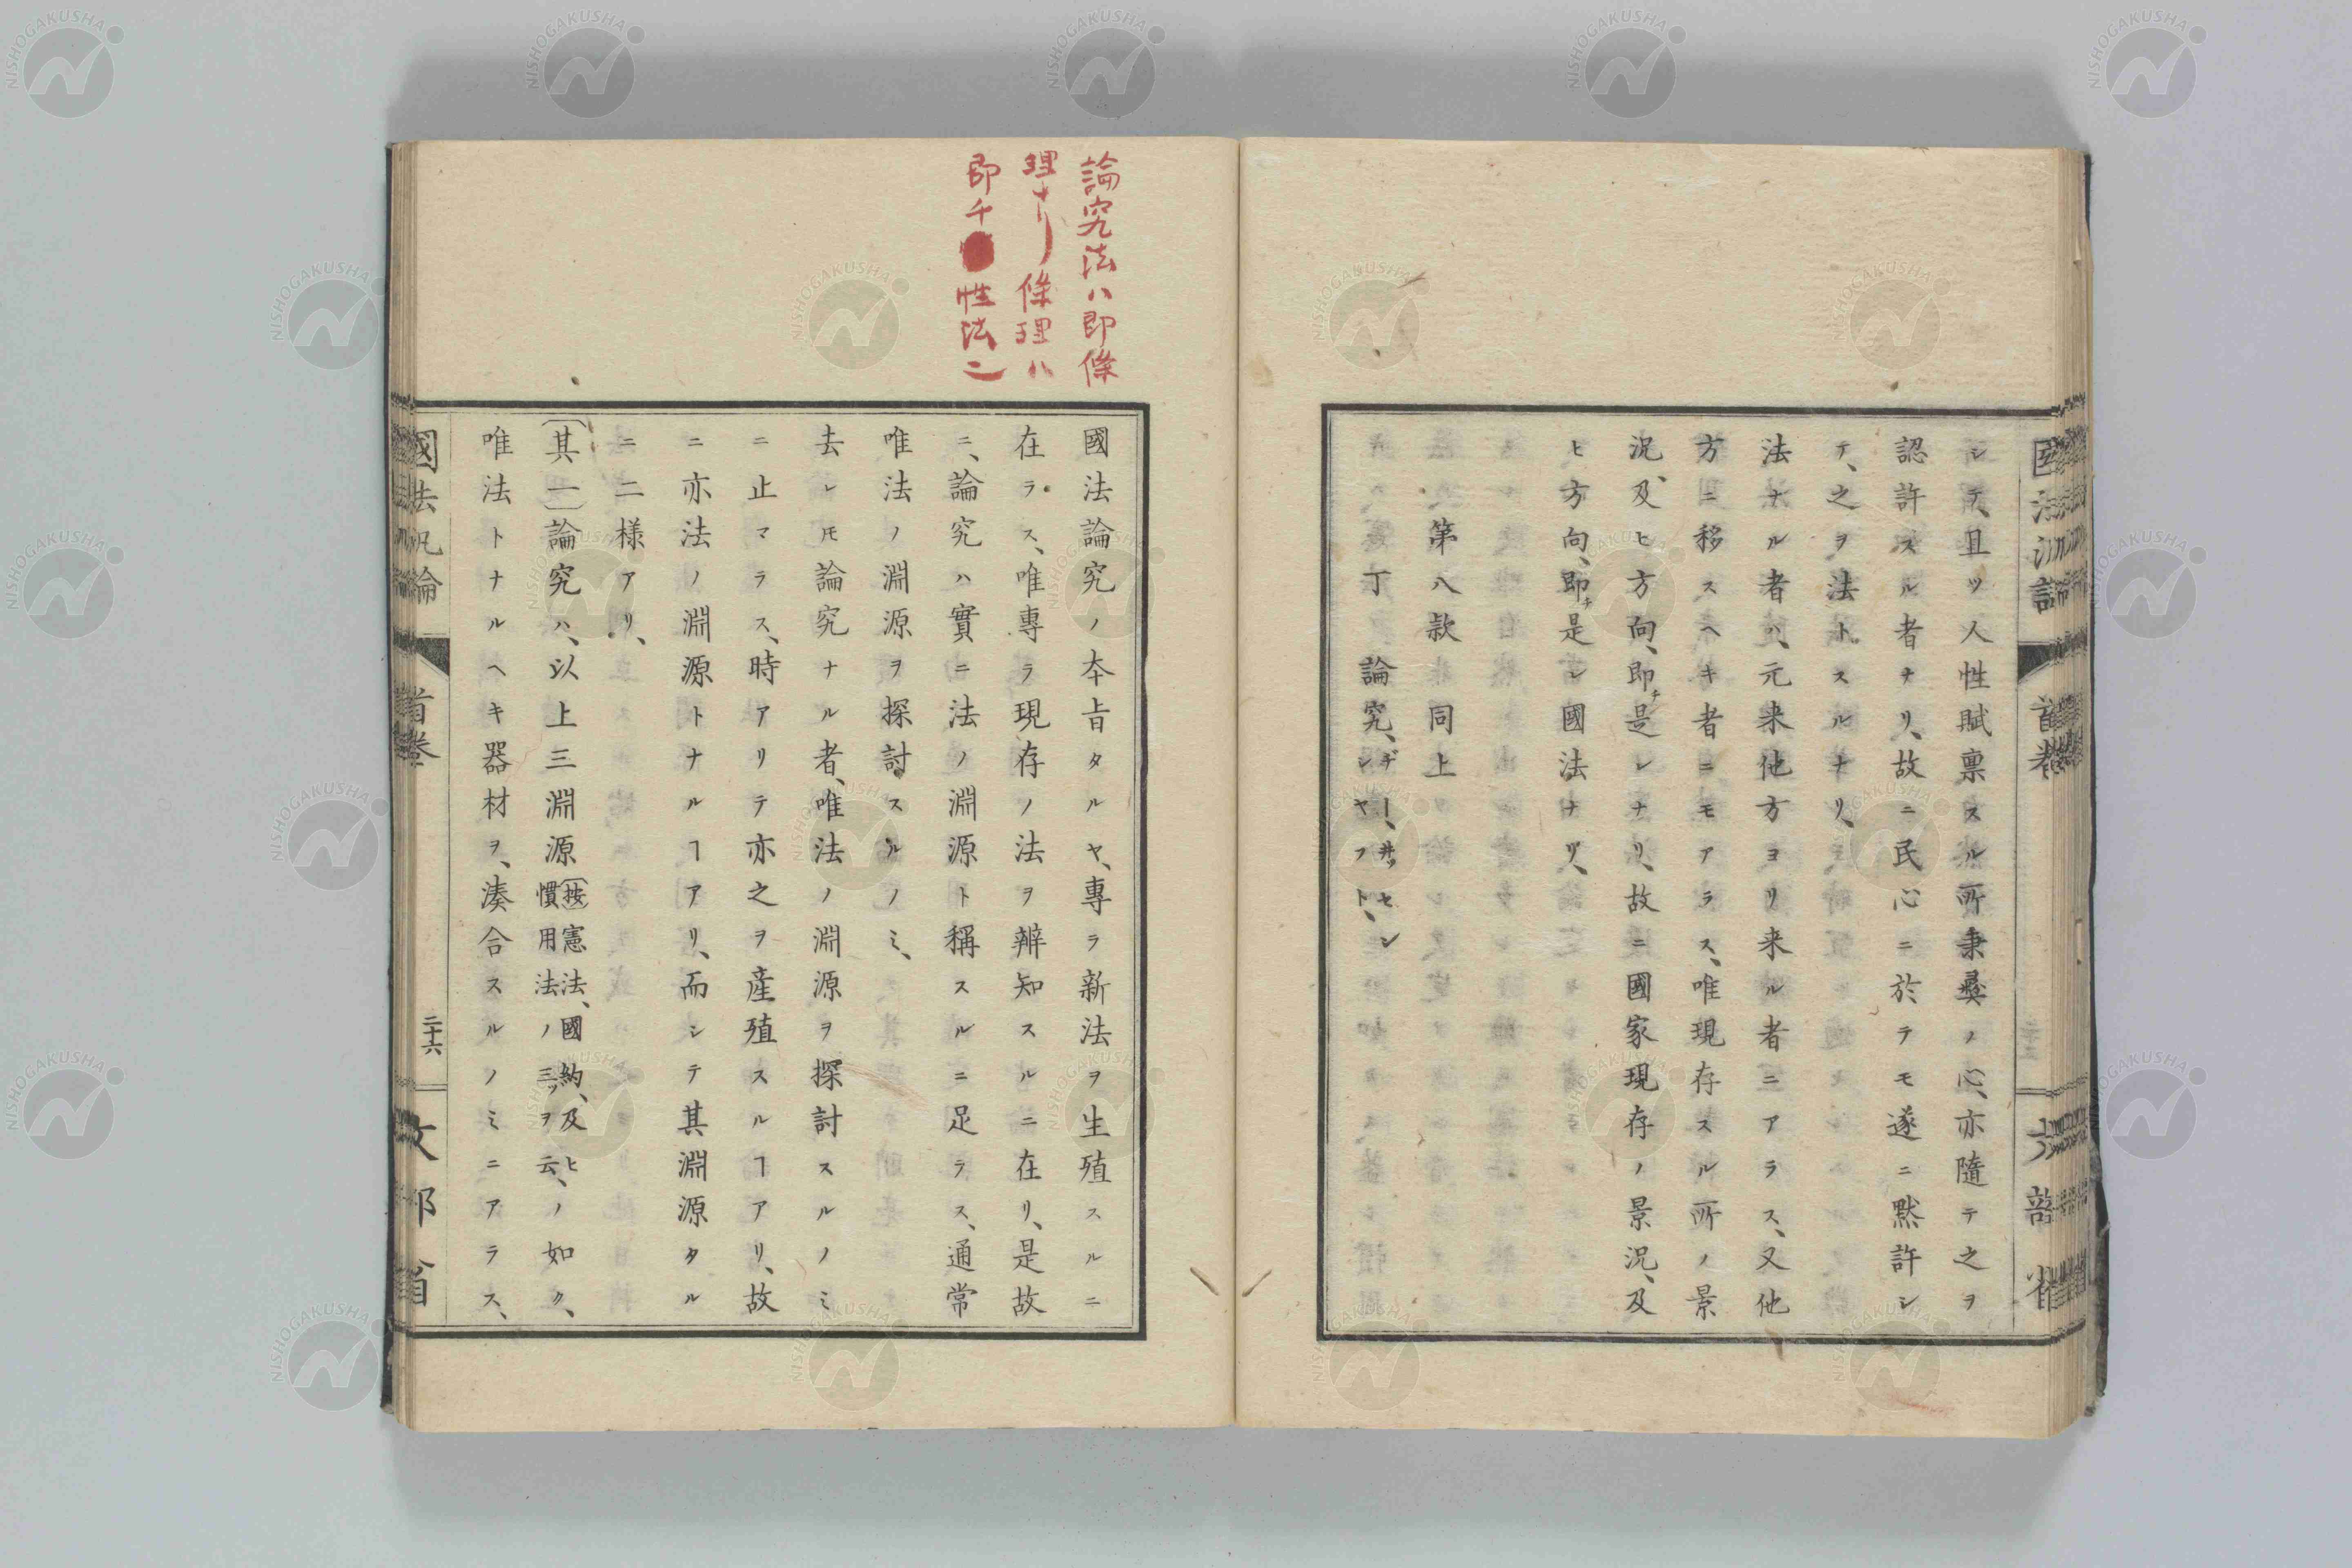 シテ、且ツ人性賦禀スル所秉彛ノ心、亦隨テ之ヲ
認許スル者ナリ、故ニ民心ニ於テモ遂ニ黙許シ
テ、之ヲ法トスルナリ、
法ナル者ハ、元来他方ヨリ来ル者ニアラス、又他
方ニ移スヘキ者ニモアラス、唯現存スル所ノ景
況、及ヒ方向、即チ是レナリ、故ニ國家現存ノ景況、及
ヒ方向、即チ是レ國法ナリ、
第八款同上
丁論究、ヂー、井ッセン
シヤフト、
論究法ハ即條
理ナリ條理ハ
即チ性法ニ
國法論究ノ本旨タルヤ、專ラ新法ヲ生殖スルニ
在ラス、唯專ラ現存ノ法ヲ辨知スルニ在リ、是故
ニ、論究ハ實ニ法ノ淵源ト稱スルニ足ラス、通常
唯法ノ淵源ヲ探討スルノミ、
去レ𪜈論究ナル者、唯法ノ淵源ヲ探討スルノミ
ニ止マラス、時アリテ亦之ヲ産殖スルヿアリ、故
ニ亦法ノ淵源トナルヿアリ、而シテ其淵源タル
ニ二様アリ、
(其一)論究ハ、以上三淵源(按)憲法、國約、及ヒ、慣用法ノ三ヲ云、ノ如ク、
唯法トナルヘキ器材ヲ、湊合スルノミニアラス、
國法汎論
首巻
二十六
文部省
NISHOGAKUSHA